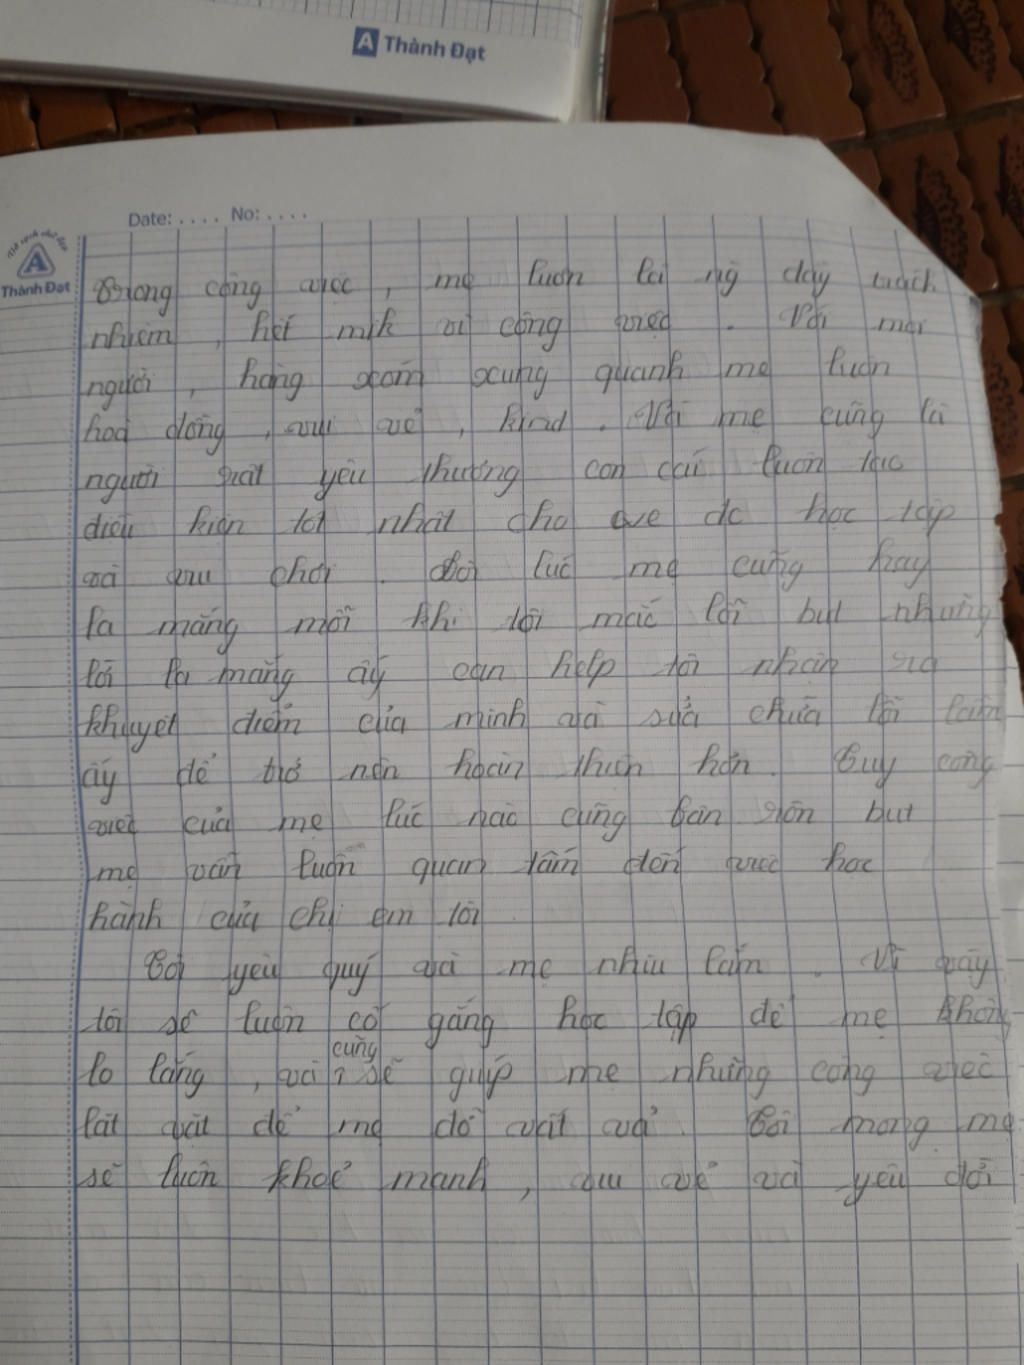 A Thành Đạt
Date: .... No: ....
Vở sạch chữ đẹp
A
Thành Đạt
Trong công việc, mẹ luôn là ng dầy trách
nhiệm, hết mih vì công việc. Với mọi
người, hàng xóm xung quanh mẹ luôn
hoà đồng, vui vẻ, kind. Với mẹ cũng là
người rất yêu thương con cái luôn tạo
điều kiện tốt nhất cho e đc học tập
và vui chơi. đôi lúc mẹ cũng hay
la mắng mỗi khi tôi mắc lỗi but những
lời la mắng ấy can help tôi nhận ra
khuyết điểm của mình và sửa chữa lỗi lầm
ấy để trở nên hoàn thiện hơn. Tuy công
việc của mẹ lúc nào cũng bận rộn but
mẹ vẫn luôn quan tâm đến việc học
hành của chị em tôi
Tôi yêu quý và mẹ nhiu lắm. Vì vậy
tôi sẽ luôn cố gắng học tập để mẹ không
lo lắng, và cũng sẽ giúp mẹ những công việc
lặt vặt để mẹ đỡ vất vả. Tôi mong mẹ
sẽ luôn khoẻ mạnh, vui vẻ và yêu đời